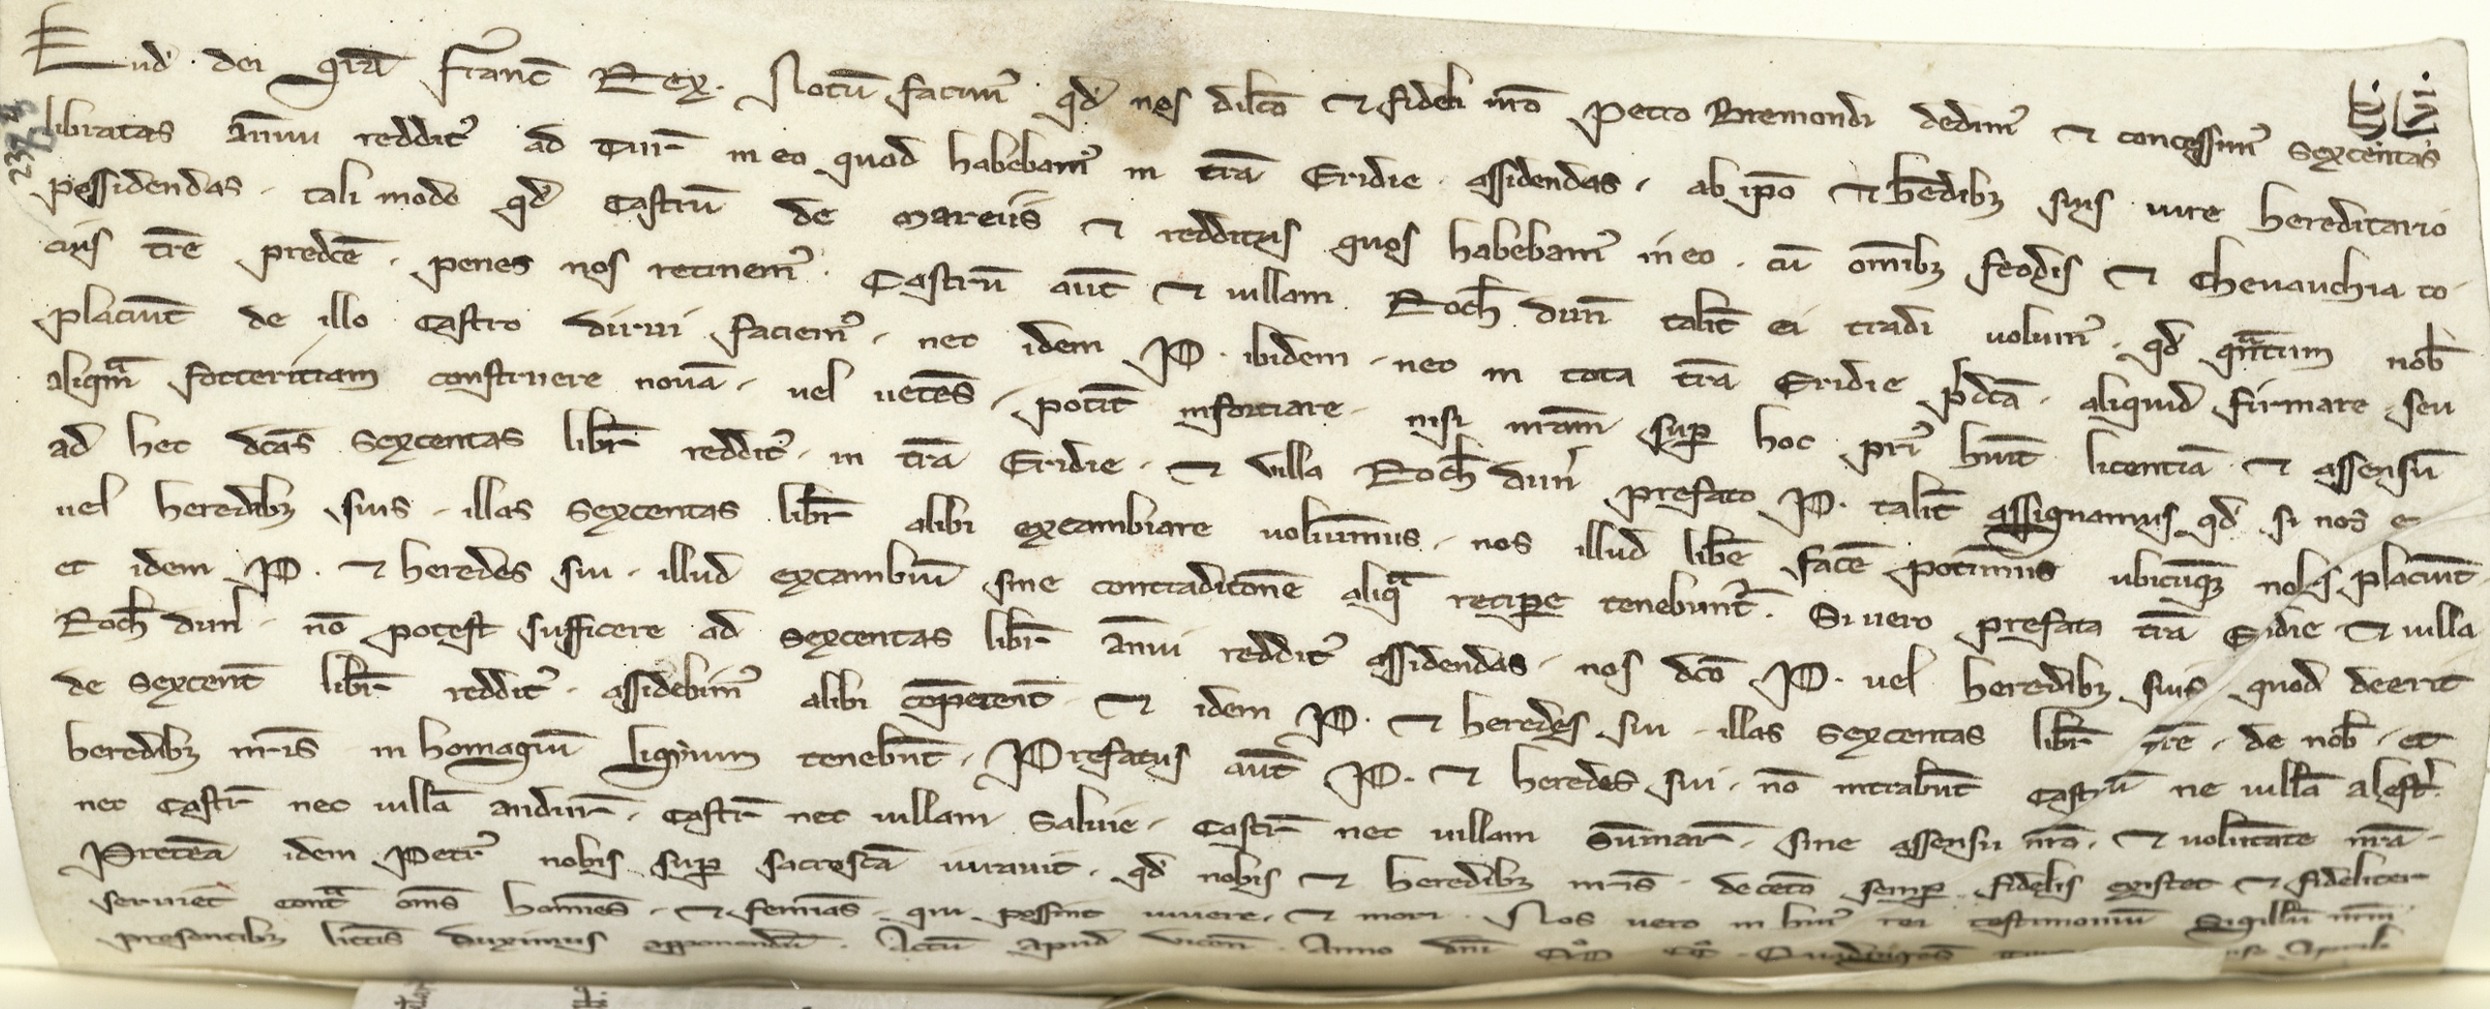 Lud' dei grā Franc̄ Rex. Notū facim᾽ qd' nos dilc̄o ⁊ fideli nr̄o Petro Bremondi dedim᾽ ⁊ concessim᾽ Sexcentas
libratas annui reddit᾽ ad Tur̄ in eo quod habebam᾽ in tr̄a Eridie assidendas. ab ip̄o ⁊ hēdibȝ suis iure hereditario
possidendas. tali modo qd' Castrū de Mareiis ⁊ redditus quos habebam᾽ in eo. cū om̄ibȝ feodis ⁊ Chevauchia to
cius tr̄e predc̄e. penes nos retinem᾽. Castrū aut̄ ⁊ villam Roch̄ dun̄ talit̄ ei tradi volum᾽. qd' qᵃntum nob̄
placuit̄ de illo Castro dirui faciem᾽. nec idem P. ibidem. nec in tota tr̄a Eridie p̄dc̄a. aliquid firmare seu
aliqᵃm forteritiam construere novā. vel vetēs. potit̄ inforciare. nisi nr̄am sup̱ hoc pri᾽ huit̄ licentiā ⁊ assensū
ad hec dc̄as Sexcentas libr̄ reddit᾽. in tr̄a Eridie. ⁊ villa Roch̄ dun̄ prefato P. talit̄ assignamus. qd' si nos ei
vel heredibȝ suis. illas Sexcentas libr̄ alibi excambiare voluim̄us. nos illud libē facē potim̄us ubicūqȝ nobis placuit̄
et idem P. ⁊ heredes sui. illud excambiū sine contraditōne aliqᵃ recip̱e tenebunt᾽. Si vero prefata tr̄a Eidie ⁊ villa
Roch̄ dun̄. nō potest sufficere ad Sexcentas libr̄ an̄ui reddit᾽ assidendas. nos dc̄o P. vel heredibȝ suis quod deerit
de Sexcent̄ libr̄ reddit᾽. assidebim᾽ alibi cōpetent̄ ⁊ idem P. ⁊ heredes sui. illas Sexcentas libr̄ tr̄e. de nob̄. et
heredibȝ nr̄is in homagiū ligium tenebūt. Prefatus aut̄ P. ⁊ heredes sui. nō intrabūt Castrū nc villā alest᾽.
nec Castr̄ nec villā andur̄. Castr̄ nec villam Salvie. Castr̄ nec villam Sūmar̄. sine assensu nr̄o. ⁊ volūtate nr̄a.
Pretēa idem Petr᾽ nobis sup̱ sacroscā iuravit. qd' nobis ⁊ heredibȝ nr̄is. decetō semp̱ fidelis existet ⁊ fideliter
serviet contᵃ om̄s homīes. ⁊ femīas. qui possint vivere. ⁊ mori. Nos vero in hui᾽ rei testimoniū Sigillū nr̄m
presentibȝ litt̄is duximus apponendū. Actū apud Vicen̄. Anno dn̄i Mᵒ CCᵒ Quadrages̄ Aprili